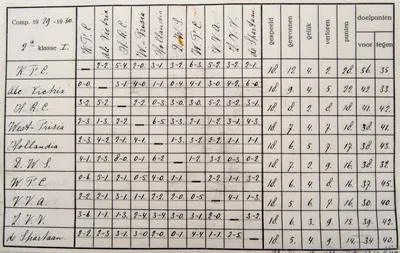 Comp. 1929-1930.
2e klasse I.
W.F.C. Alc. Victrix H.R.C. West-Frisia Hollandia D.W.S. W.F.C. V.V.A. Z.V.V. de Spartaan gespeeld gewonnen gelijk verloren punten doelpunten
voor tegen
— 2-2 5-4 2-0 3-1 3-2 6-3 5-2 3-2 2-1 18. 12. 4. 2. 28. 56. 35.
Alc. Victrix 0-0 — 3-1 4-0 1-1 0-4 4-1 3-0 4-2 6-0 18. 9. 4. 5. 22. 42. 33.
H.R.C. 3-2 5-2 — 2-2 0-3 3-0 3-0 5-2 3-2 3-1 18. 8. 2. 8. 18. 41. 42.
West-Frisia 2-3 1-3 2-2 — 6-5 3-3 2-1 1-2 3-1 4-3 18. 7. 4. 7. 18. 38. 41.
Hollandia 2-3 4-2 2-1 4-1 — 1-3 3-2 2-2 1-1 1-1 18. 6. 5. 7. 17. 38. 43.
D.W.S. 4-1 2-3 8-0 0-1 6-2 — 1-2 3-2 0-3 0-2 18. 7. 2. 9. 16. 38. 32.
W.F.C. 0-6 2-1 2-1 0-5 4-0 1-1 — 2-2 1-1 3-2 18. 6. 4. 8. 16. 37. 45.
V.V.A. 2-2 2-1 3-1 1-1 2-2 2-0 0-5 — 4-1 1-3 18. 5. 6. 7. 16. 30. 40.
Z.V.V. 3-6 1-1 1-3 2-4 3-4 3-0 3-1 2-0 — 3-2 18. 6. 3. 9. 15. 39. 42.
de Spartaan 2-2 2-3 3-1 3-0 2-0 0-1 4-4 1-1 2-5 — 18. 5. 4. 9. 14. 34. 40.